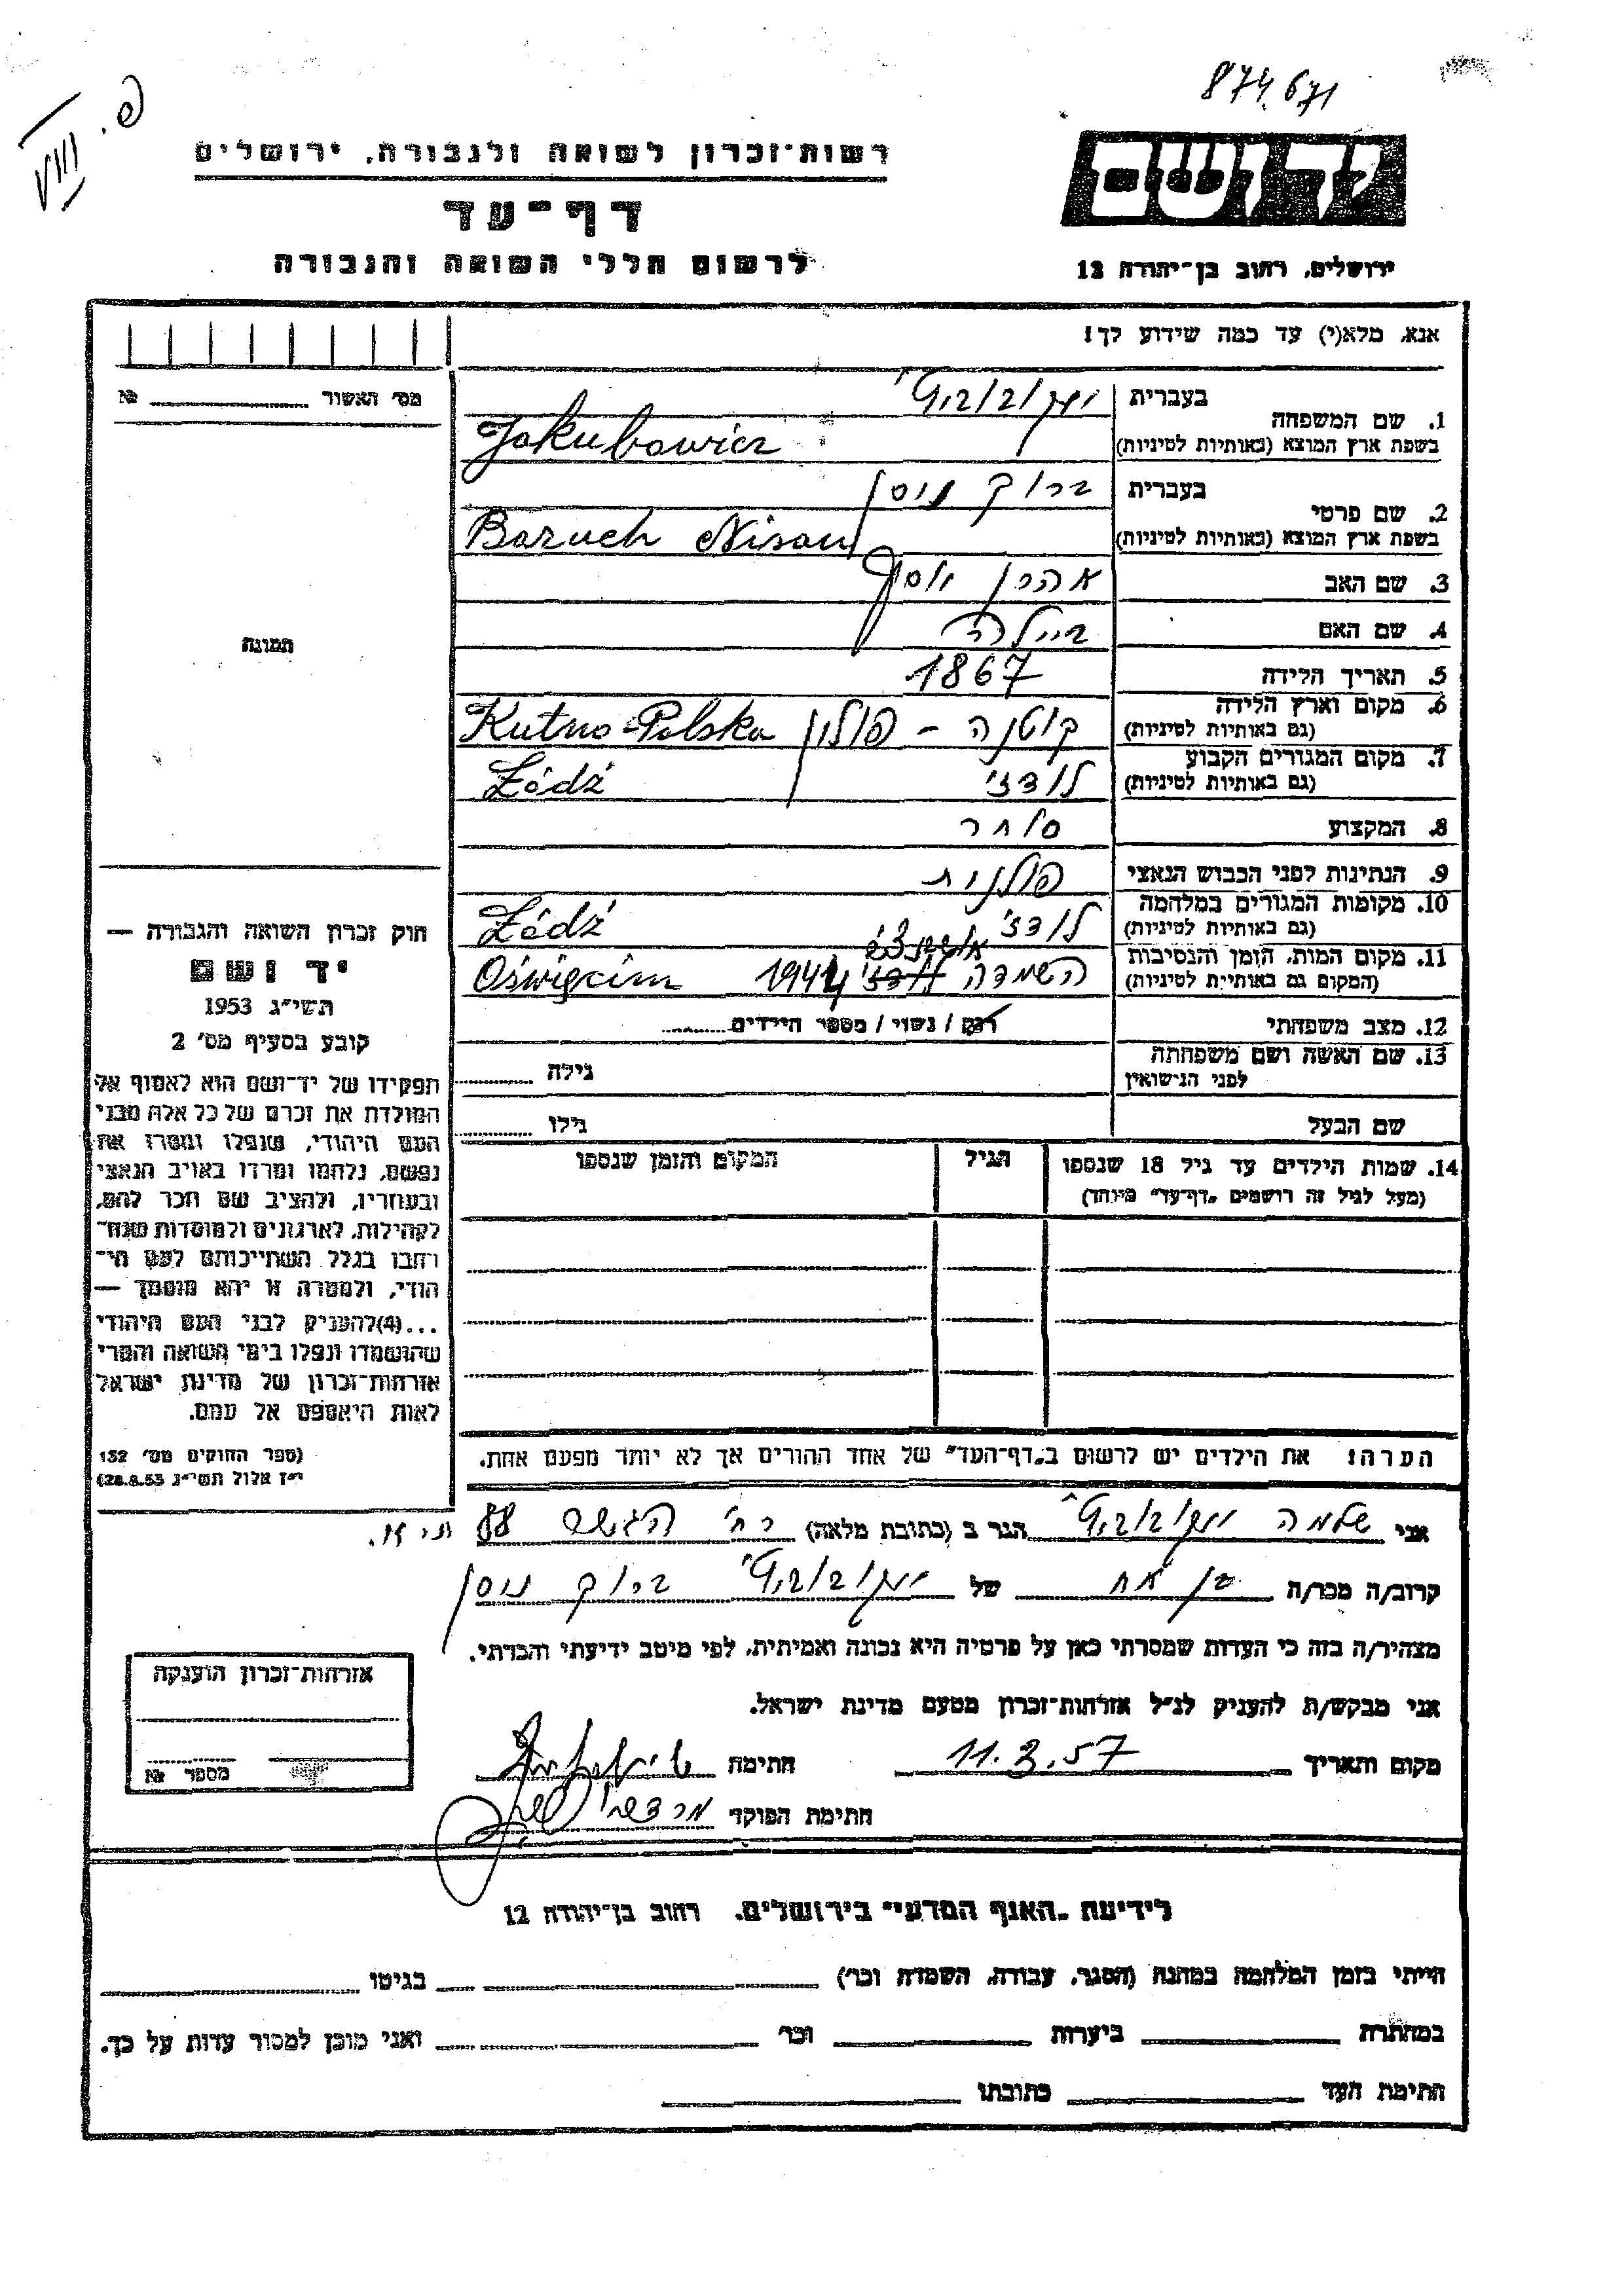 874.671
פ. VIII
רשות-זכרון לשואה ולגבורה, ירושלים
יד ושם
דף-עד
לרשום חללי השואה והגבורה
ירושלים, רחוב בן-יהודה 12
אנא, מלא(י) עד כמה שידוע לך!
מס' האשור № 
1. שם המשפחה בעברית יעקובוביץ'
בשפת ארץ המוצא (באותיות לטיניות) Jakubowicz
2. שם פרטי בעברית ברוך ניסן
בשפת ארץ המוצא (באותיות לטיניות) Baruch Nisan
3. שם האב אהרן יוסף
4. שם האם ביילה
תמונה
5. תאריך הלידה 1867
6. מקום וארץ הלידה קוטנה – פולין Kutno-Polska
(גם באותיות לטיניות)
7. מקום המגורים הקבוע לודז' Łódź
(גם באותיות לטיניות)
8. המקצוע סוחר
9. הנתינות לפני הכבוש הנאצי פולנית
10. מקומות המגורים במלחמה לודז' Łódź
(גם באותיות לטיניות)
11. מקום המות, הזמן והנסיבות השמדה 1944 Oświęcim
(המקום גם באותיות לטיניות)
12. מצב משפחתי רווק / נשוי / מספר הילדים
13. שם האשה ושם משפחתה גילה
לפני הנישואין
שם הבעל גילו
14. שמות הילדים עד גיל 18 שנספו הגיל המקום והזמן שנספו
(מעל לגיל זה רושמים "דף-עד" מיוחד)
הערה! את הילדים יש לרשום ב"דף-העד" של אחד ההורים אך לא יותר מפעם אחת.
חוק זכרון השואה והגבורה —
יד ושם
תשי"ג 1953
קובע בסעיף מס' 2
תפקידו של יד-ושם הוא לאסוף אל
המולדת את זכרם של כל אלה מבני
העם היהודי, שנפלו ומסרו את
נפשם, נלחמו ומרדו באויב הנאצי
ובעוזריו, ולהציב שם וזכר להם,
לקהילות, לארגונים ולמוסדות שנח-
רבו בגלל השתייכותם לעם הי-
הודי, ולמטרה זו יהא מוסמך —
...(4)להעניק לבני העם היהודי
שהושמדו ונפלו בימי השואה והמרי
אזרחות-זכרון של מדינת ישראל
לאות היאספם אל עמם.
(ספר החוקים מס' 132
י"ז אלול תשי"ג 28.8.53)
אני שלמה יעקובוביץ' הגר ב (כתובת מלאה) רח' 88 ת"א.
קרוב/ה מכר/ה בן אח של יעקובוביץ' ברוך ניסן
מצהיר/ה בזה כי העדות שמסרתי כאן על פרטיה היא נכונה ואמיתית, לפי מיטב ידיעתי והכרתי.
אני מבקש/ת להעניק לנ"ל אזרחות-זכרון מטעם מדינת ישראל.
מקום ותאריך 11.3.57 חתימה
חתימת הפוקד
אזרחות-זכרון הוענקה
מספר №
לידיעת "האגף המדעי" בירושלים, רחוב בן-יהודה 12
הייתי בזמן המלחמה במחנה (הסגר, עבודה, השמדה וכו') בגיטו
במחתרת ביערות וכו' ואני מוכן למסור עדות על כך.
חתימת העד כתובתו